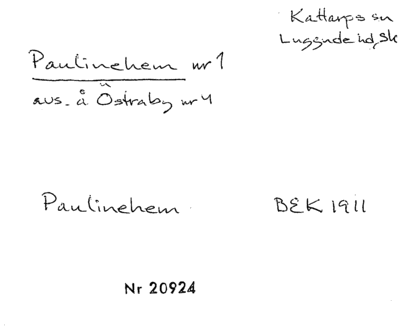 Kattarps sn
Luggude hd, Sk
Paulinehem nr 1
avs. å Östraby nr 4
Paulinehem BEK 1911
Nr 20924